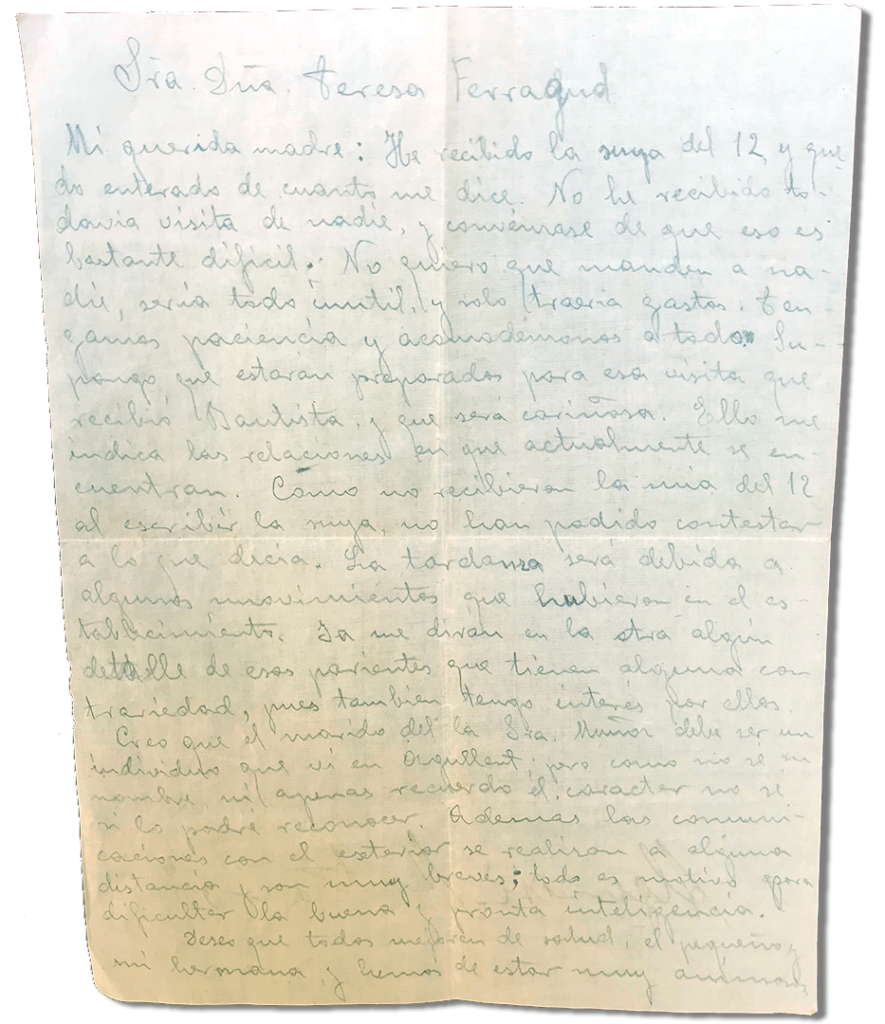 Sra. Dña. Teresa Ferragud
Mi querida madre: He recibido la suya del 12, y que-
do enterado de cuanto me dice. No he recibido to-
davia visita de nadie, y convénzase de que eso es
bastante dificil. No quiero que manden a na-
die, seria todo inutil, y solo traeria gastos. Ten
gamos paciencia y acomodemonos a todo. Su-
pongo que estarán preparados para esa visita que
recibió Bautista, y que será cariñosa. Ello me
indica las relaciones en que actualmente se en-
cuentran. Como no recibieron la mia del 12
al escribir la suya, no han podido contestar
a lo que decia. La tardanza será debida a
algunos movimientos que hubieron en el es-
tablecimiento. Ya me diran en la otra algún
detalle de esos parientes que tienen alguna con
trariedad, pues tambien tengo interés por ellos.
Creo que el marido del la Sra. Muñoz debe ser un
individuo que vi en Ongullent, pero como no sé su
nombre ni apenas recuerdo el caracter no sé
si lo podre reconocer. Ademas las comuni-
caciones con el exterior se realizan a alguna
distancia y son muy breves; todo es motivo para
dificultar la buena y pronta inteligencia.
Deseo que todos mejoren de salud, el pequeño, y
mi hermana, y hemos de estar muy animosos,